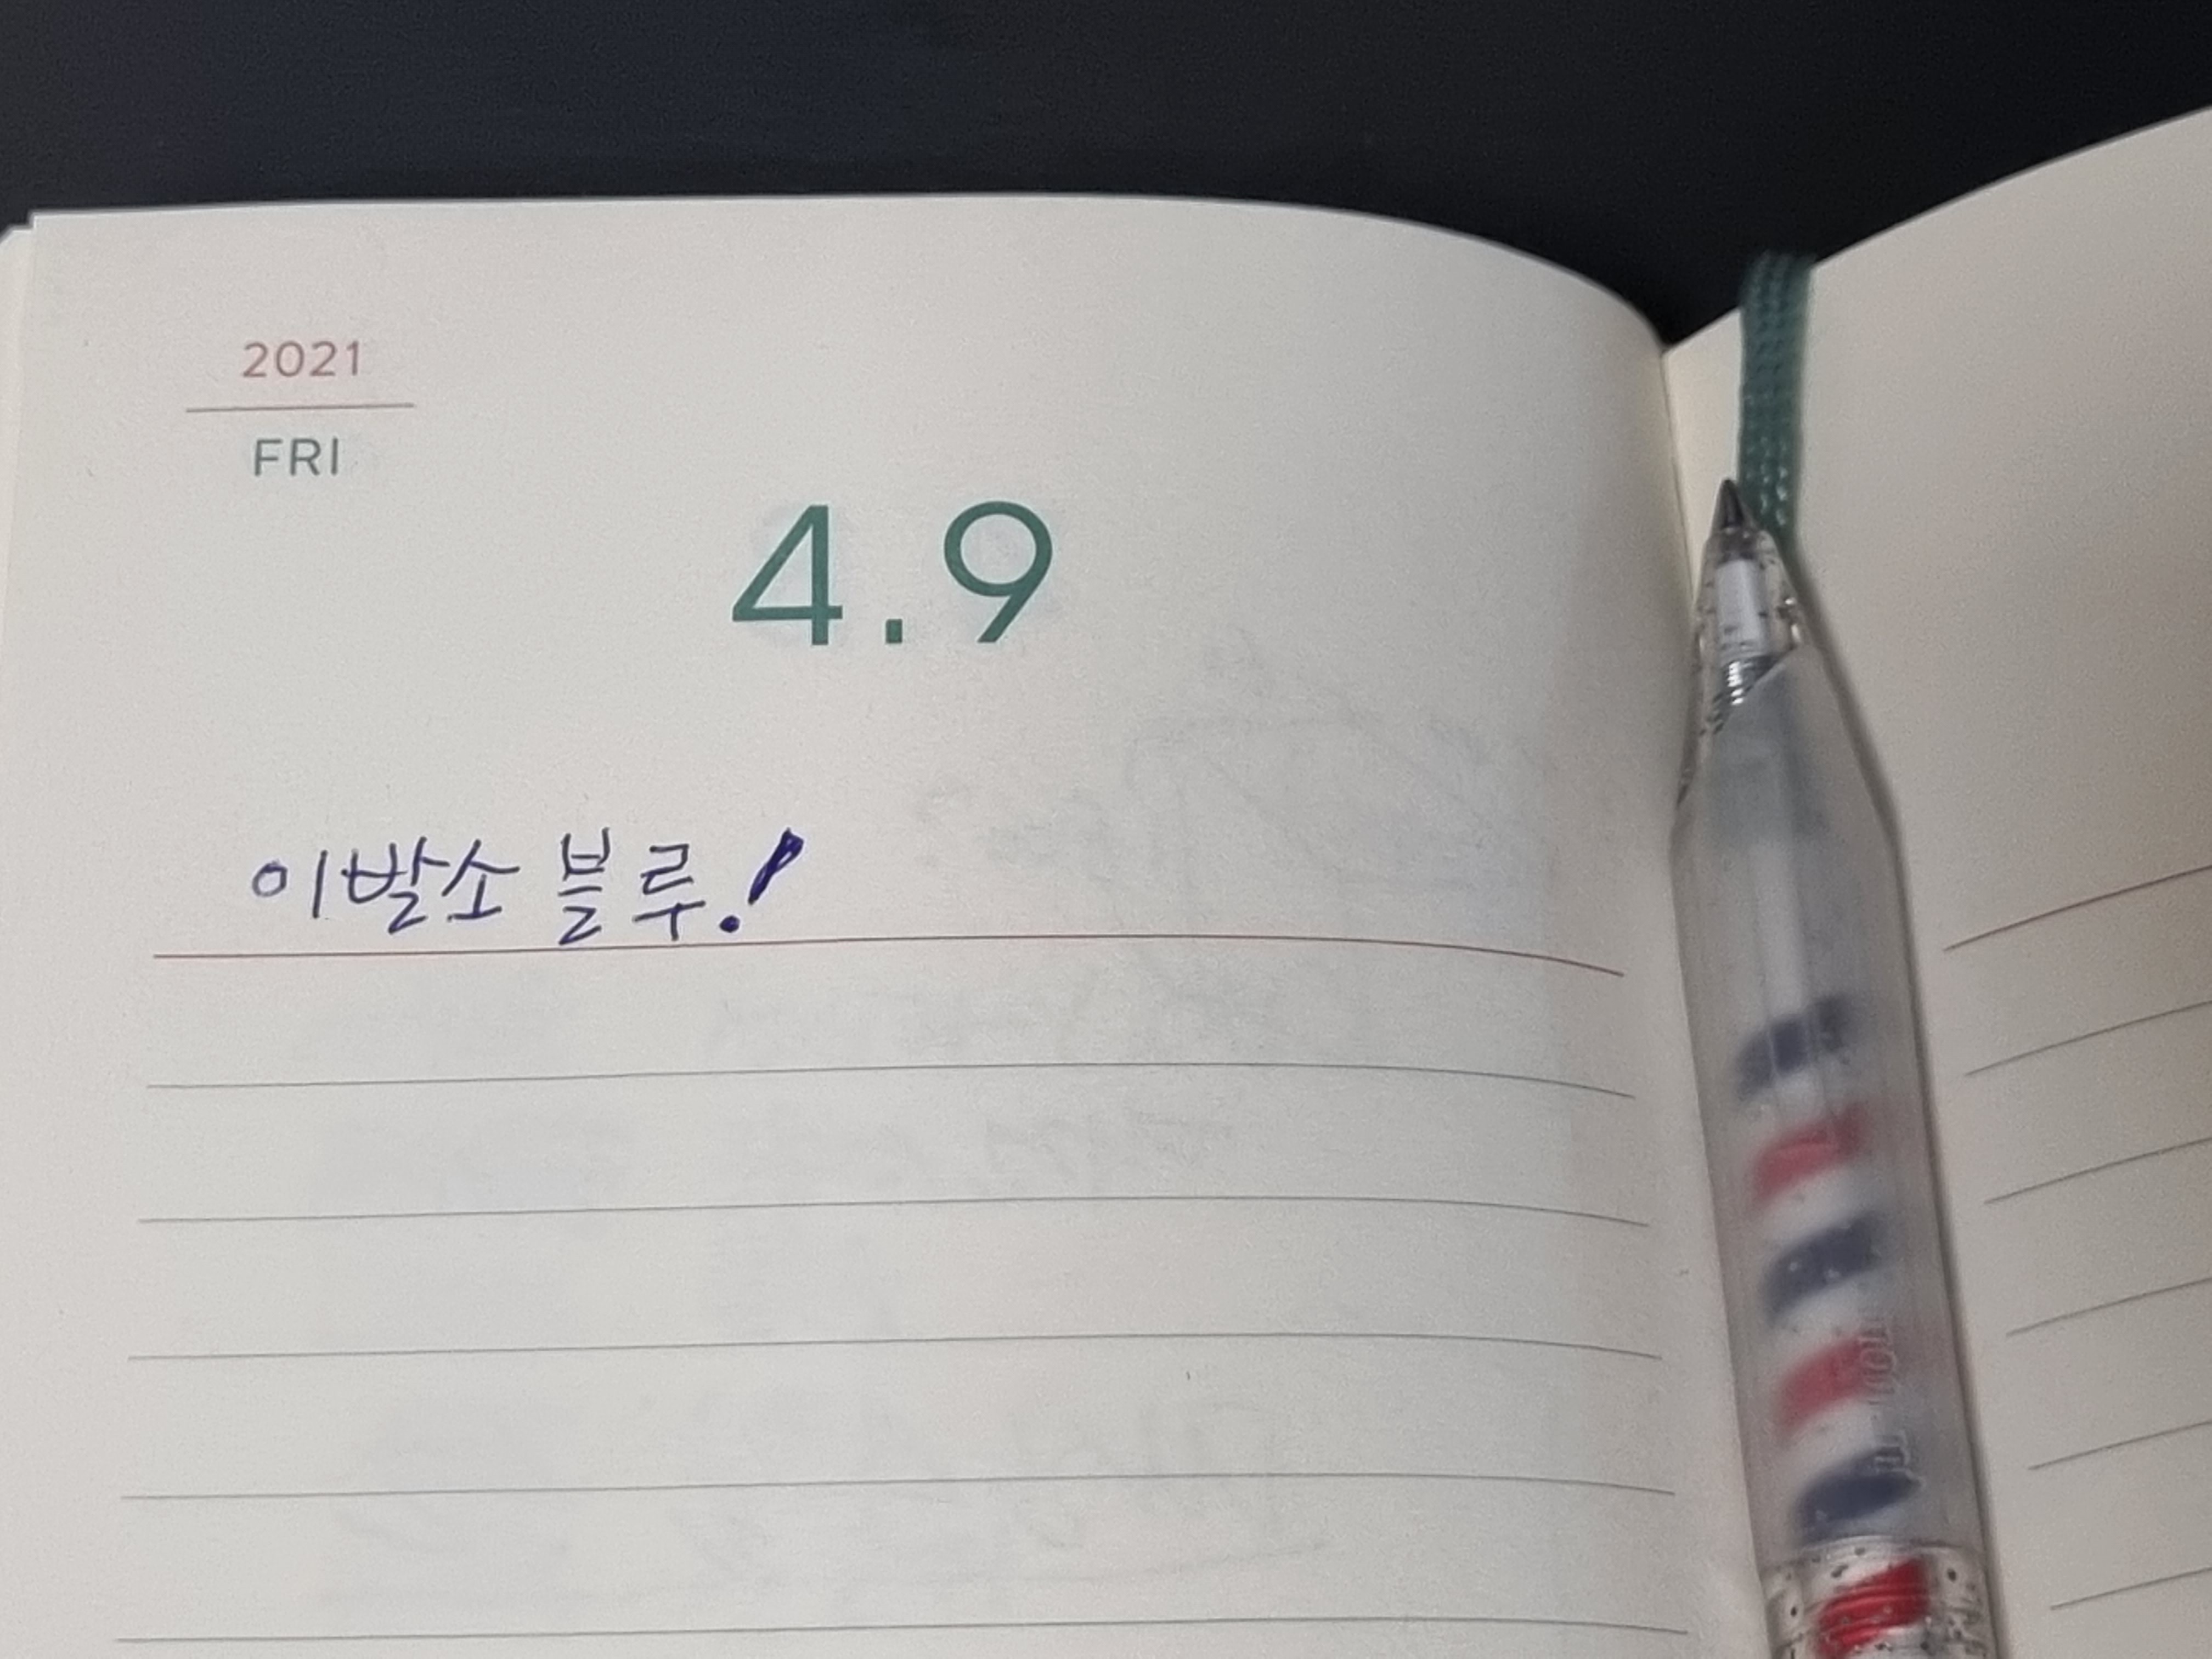 2021
FRI
4.9
이발소 블루!